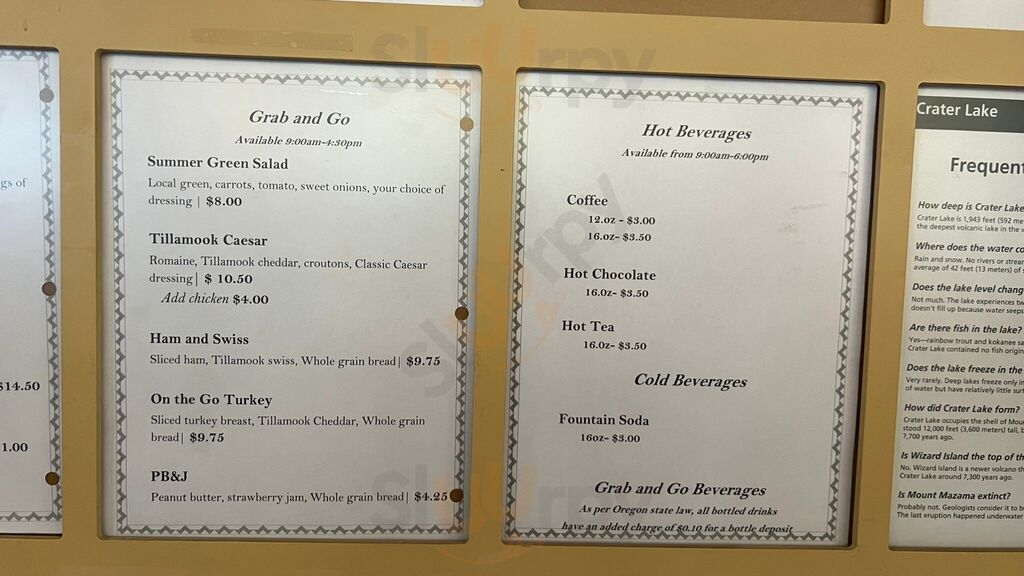 gs of
$14.50
1.00
Grab and Go
Available 9:00am-4:30pm
Summer Green Salad
Local green, carrots, tomato, sweet onions, your choice of
dressing | $8.00
Tillamook Caesar
Romaine, Tillamook cheddar, croutons, Classic Caesar
dressing| $ 10.50
Add chicken $4.00
Ham and Swiss
Sliced ham, Tillamook swiss, Whole grain bread| $9.75
On the Go Turkey
Sliced turkey breast, Tillamook Cheddar, Whole grain
bread| $9.75
PB&J
Peanut butter, strawberry jam, Whole grain bread| $4.25
Hot Beverages
Available from 9:00am-6:00pm
Coffee
12.oz - $3.00
16.oz- $3.50
Hot Chocolate
16.oz- $3.50
Hot Tea
16.oz- $3.50
Cold Beverages
Fountain Soda
16oz- $3.00
Grab and Go Beverages
As per Oregon state law, all bottled drinks
have an added charge of $0.10 for a bottle deposit
Crater Lake
Frequent
How deep is Crater Lake
Crater Lake is 1,943 feet (592 me
the deepest volcanic lake in the w
Where does the water co
Rain and snow. No rivers or strea
average of 42 feet (13 meters) of s
Does the lake level chang
Not much. The lake experiences tw
doesn't fill up because water seeps
Are there fish in the lake?
Yes—rainbow trout and kokanee sa
Crater Lake contained no fish origin
Does the lake freeze in the
Very rarely. Deep lakes freeze only in
of water but have relatively little sur
How did Crater Lake form?
Crater Lake occupies the shell of Mou
stood 12,000 feet (3,600 meters) tall, b
7,700 years ago.
Is Wizard Island the top of th
No. Wizard Island is a newer volcano th
Crater Lake around 7,300 years ago.
Is Mount Mazama extinct?
Probably not. Geologists consider it to b
The last eruption happened underwater
Slurpy
Slurpy
Slurpy